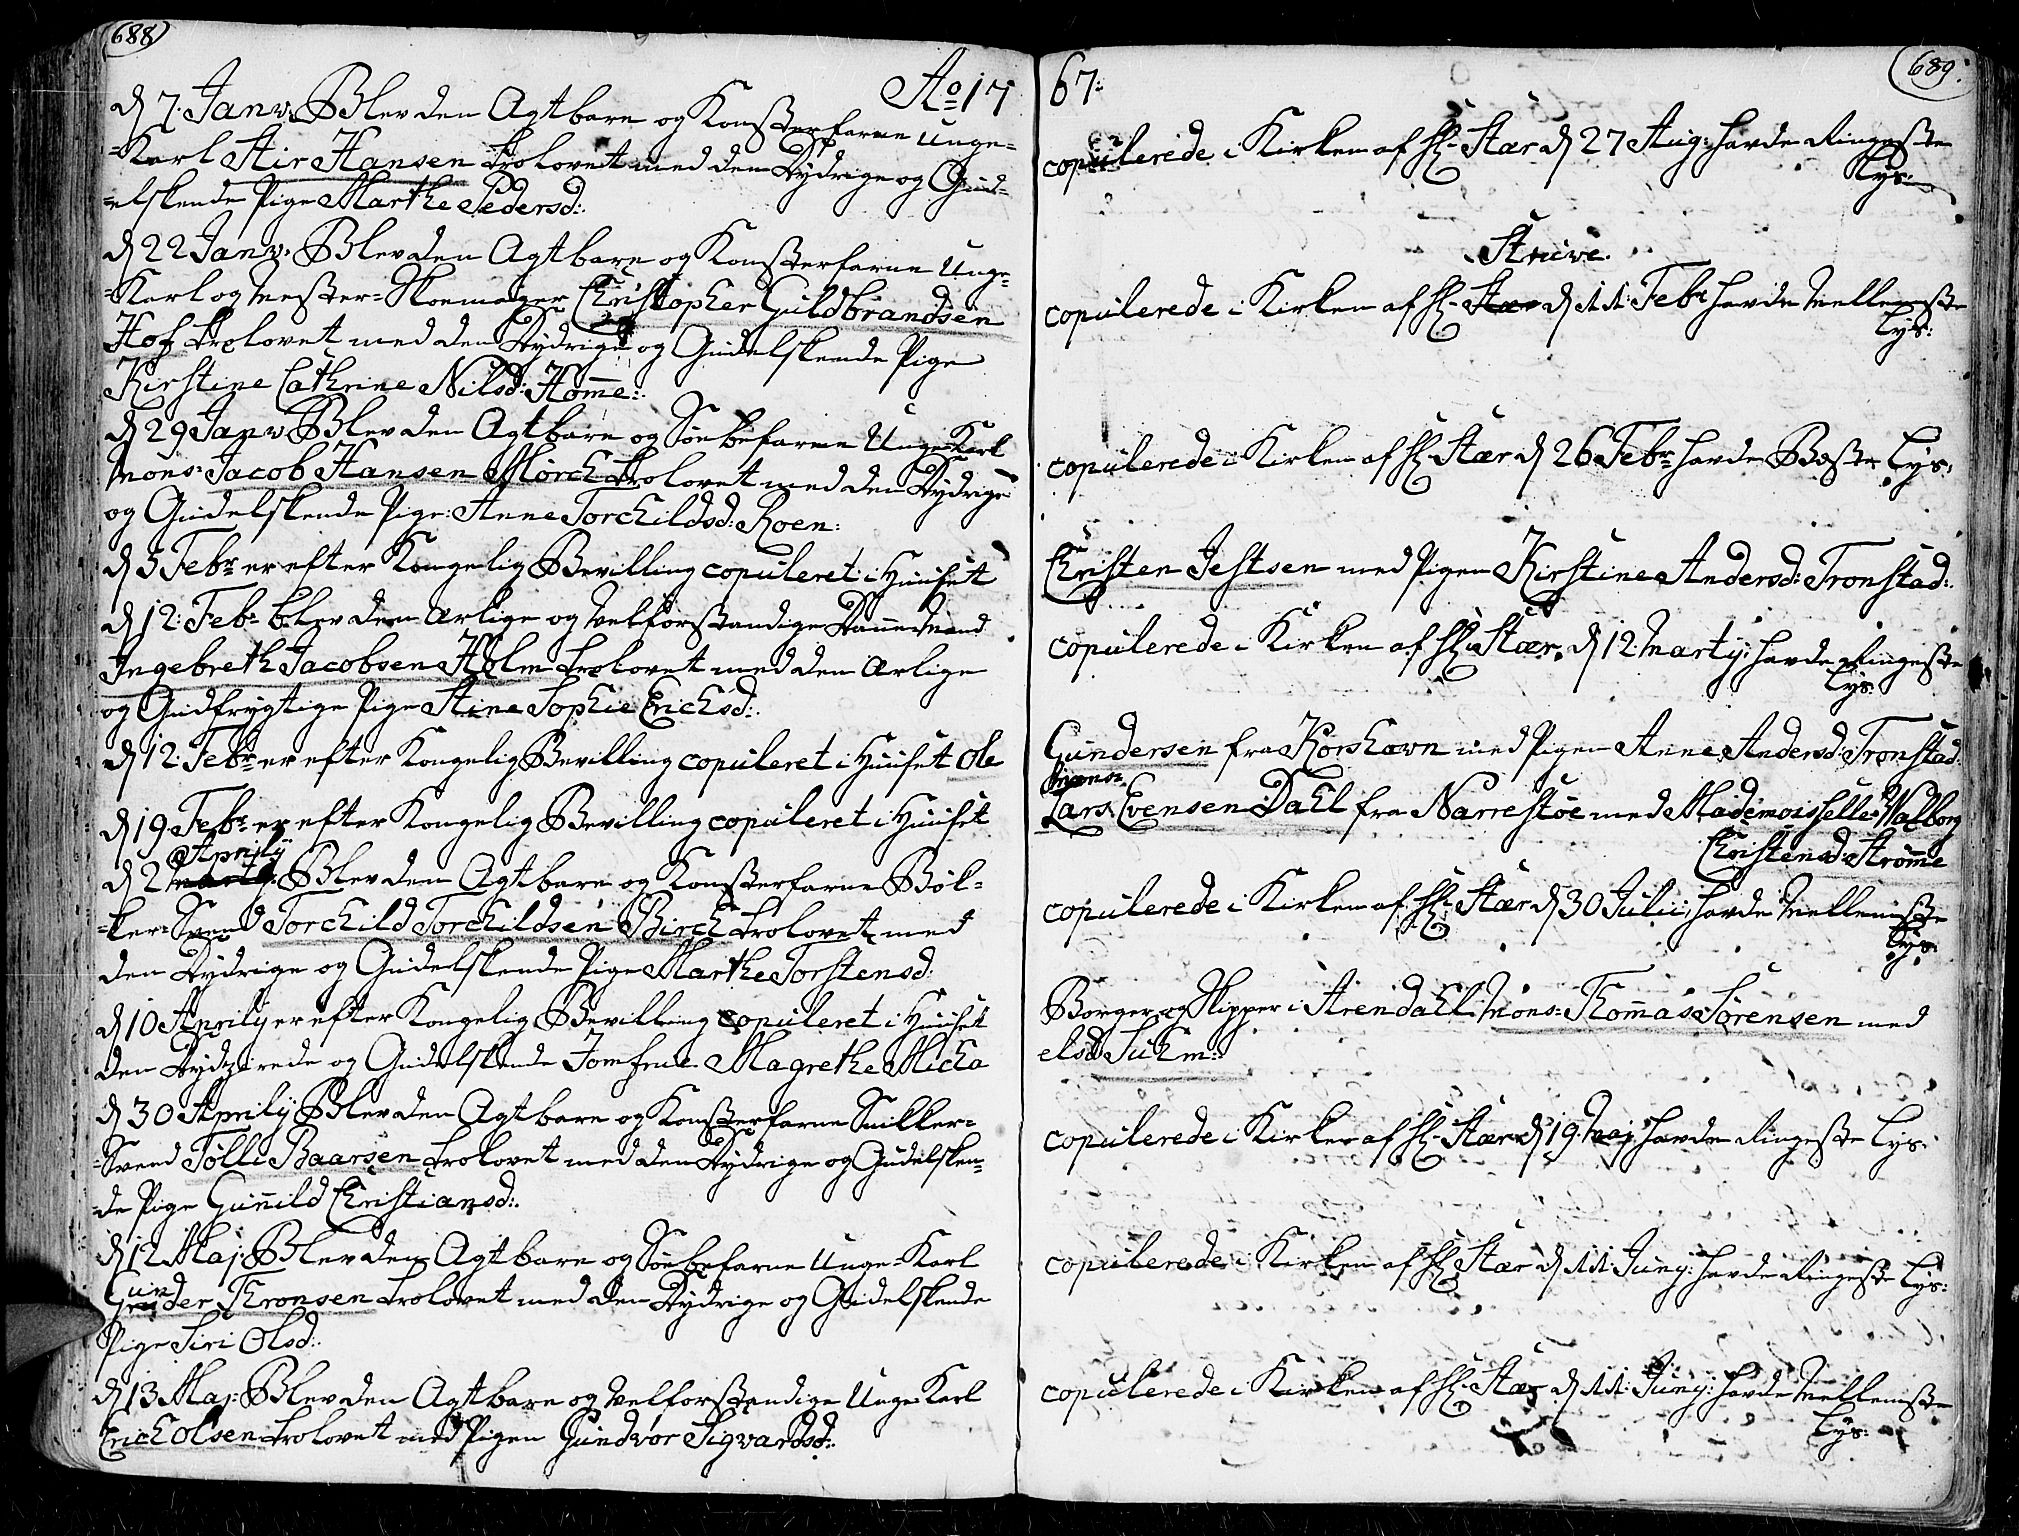 688
Ao 17
d 7. Janv: Blev den Agtbare og Konsterfarne Unge-
-Karl Air Hansen trolovet med den Dydrige og Gud-
-elskende Pige Marthe Pedersd:.
d 22 Janv: Blev den Agtbare og Konsterfarne Unge-
-Karl og Mester-Skoemager Christopher Guldbrandsen
Hof trolovet med den Dydrige og Gudelskende Pige
Kirstine Cathrine Nilsd: Homme:.
d 29 Janv: Blev den Agtbare og Söebefarne Unge-Karl
Mons: Jacob Hansen Mörch trolovet med den Dydrige
og Gudelskende Pige: Anne Torchildsd: Roen:
d 5 Febr: er efter Kongelig Bevilling copuleret i Huuset
d 12: Febr: blev den Ærlige og Velforstandige Dannemand
Ingebreth Jacobsen Holm trolovet med den Ærlige
og Gudfrygtige Pige Stine Sophie Erichsd:.
d 12: Febr: er efter Kongelig Bevilling copuleret i Huuset Ole
d 19 Febr: er efter Kongelig Bevilling copuleret i Huuset
Aprily
d 2 Marty: Blev den Agtbare og Konsterfarne Böl-
-ker-Svend Torchild Torchildsen Birch trolovet med
den Dydrige og Gudelskende Pige Marthe Torstensd:
d 10 Aprily er efter Kongelig Bevilling copuleret i Huuset
den Dydzirede og Gudelskende Jomfrue Magrethe Micha
d 30 Aprily Blev den Agtbare og Konsterfarne Snilker-
-Svend Tölle Baarsen trolovet med den Dydrige og Gudelsken-
-de Pige Gunnild Christiansd:.
d 12 Maj: Blev den Agtbare og Söebefarne Unge-Karl
Gunder Thronsen trolovet med den Dydrige og Gudelskende
Pige Siri Olsd:.
d 13 Maj: Blev den Agtbare og Velforstandige Unge-Karl
Erich Olsen trolovet med Pigen Gundvor Sigvardsd:.
689.
67:
copulerede i Kirken af Hr. Stær d 27 Aug: havde Ringeste
Lys:
Struve.
copulerede i Kirken af Hr. Stær d 11: Febr havde Mellemste
Lys:
copulerede i Kirken af Hr. Stær d 26 Febr: havde Beste Lys:
Christen Jestsen med Pigen Kirstine Andersd: Tronstad:
copulerede i Kirken af Hr. Stær, d 12 Marty: havde Ringeste
Lys:
Gundersen fra Korshavn med Pigen Anne Andersd: Tronstad:
Lars Evensen Dahl fra Narrestöe med Mademoisselle Walborg
Christensd: Strömme
copulerede i Kirken af Hr. Stær d 30 Julii, havde Mellemste
Lys:
Borger og Skipper i Arendahl Mons: Thommas Sörensen med
elsd: Suhm:.
copulerede i Kirken af Hr. Stær d 19. Maj: havde Ringeste Lys:
copulerede i Kirken af Hr. Stær d 11: Juny: havde Ringeste Lys:
copulerede i Kirken af Hr. Stær d 11: Juny: havde Mellemste
Lys: